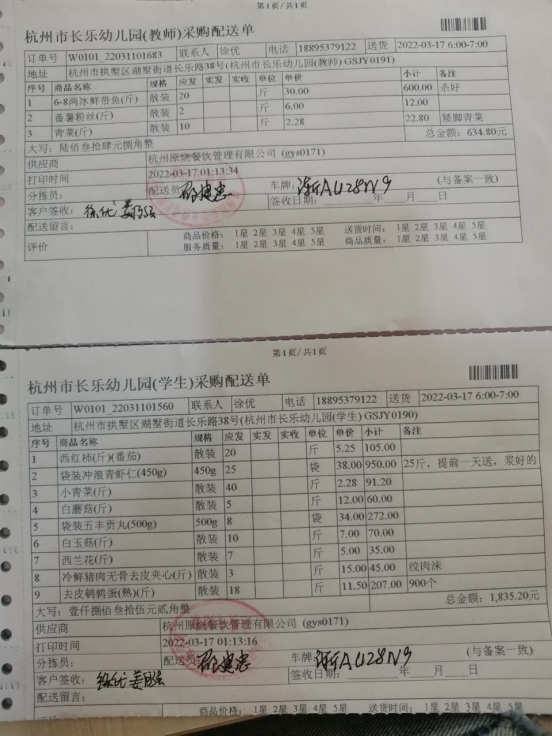 第1页/共1页
杭州市长乐幼儿园(教师)采购配送单
订单号 W0101_22031101683 联系人 徐优 电话 18895379122 送货 2022-03-17 6:00-7:00
地址 杭州市拱墅区湖墅街道长乐路38号(杭州市长乐幼儿园(教师) GSJY0191)
序号 商品名称 规格 应发 实发 实收 单位 单价 小计 备注
1 6-8两冰鲜带鱼(斤) 散装 20 斤 30.00 600.00 杀好
2 番薯粉丝(斤) 散装 2 斤 6.00 12.00
3 青菜(斤) 散装 10 斤 2.28 22.80 矮脚青菜
大写: 陆佰叁拾肆元捌角整 总金额: 634.80元
供应商 杭州原烧餐饮管理有限公司 (gys0171)
打印时间 2022-03-17 01:13:34
分拣员: 配送员: 车牌: 浙AU28N9 (与备案一致)
客户签收: 徐优 签收日期: 年 月 日
配送留言:
评价 商品价格: 1星 2星 3星 4星 5星 送货时间: 1星 2星 3星 4星 5星
服务质量: 1星 2星 3星 4星 5星 商品质量: 1星 2星 3星 4星 5星
第1页/共1页
杭州市长乐幼儿园(学生)采购配送单
订单号 W0101_22031101560 联系人 徐优 电话 18895379122 送货 2022-03-17 6:00-7:00
地址 杭州市拱墅区湖墅街道长乐路38号(杭州市长乐幼儿园(学生) GSJY0190)
序号 商品名称 规格 应发 实发 实收 单位 单价 小计 备注
1 西红柿(斤)(番茄) 散装 20 斤 5.25 105.00
2 袋装冲浪青虾仁(450g) 450g 25 袋 38.00 950.00 25斤，提前一天送，浆好的
3 小青菜(斤) 散装 40 斤 2.28 91.20
4 白蘑菇(斤) 散装 5 斤 12.00 60.00
5 袋装五丰贡丸(500g) 500g 8 袋 34.00 272.00
6 白玉菇(斤) 散装 10 斤 7.00 70.00
7 西兰花(斤) 散装 7 斤 5.00 35.00
8 冷鲜猪肉无骨去皮夹心(斤) 散装 3 斤 15.00 45.00 绞肉沫
9 去皮鹌鹑蛋(熟)(斤) 散装 18 斤 11.50 207.00 900个
大写: 壹仟捌佰叁拾伍元贰角整 总金额: 1,835.20元
供应商 杭州原烧餐饮管理有限公司 (gys0171)
打印时间 2022-03-17 01:13:16
分拣员: 配送员: 车牌: 浙AU28N9 (与备案一致)
客户签收: 徐优 签收日期: 年 月 日
配送留言:
商品价格: 1星 2星 3星 4星 5星 送货时间: 1星 2星 3星 4星 5星